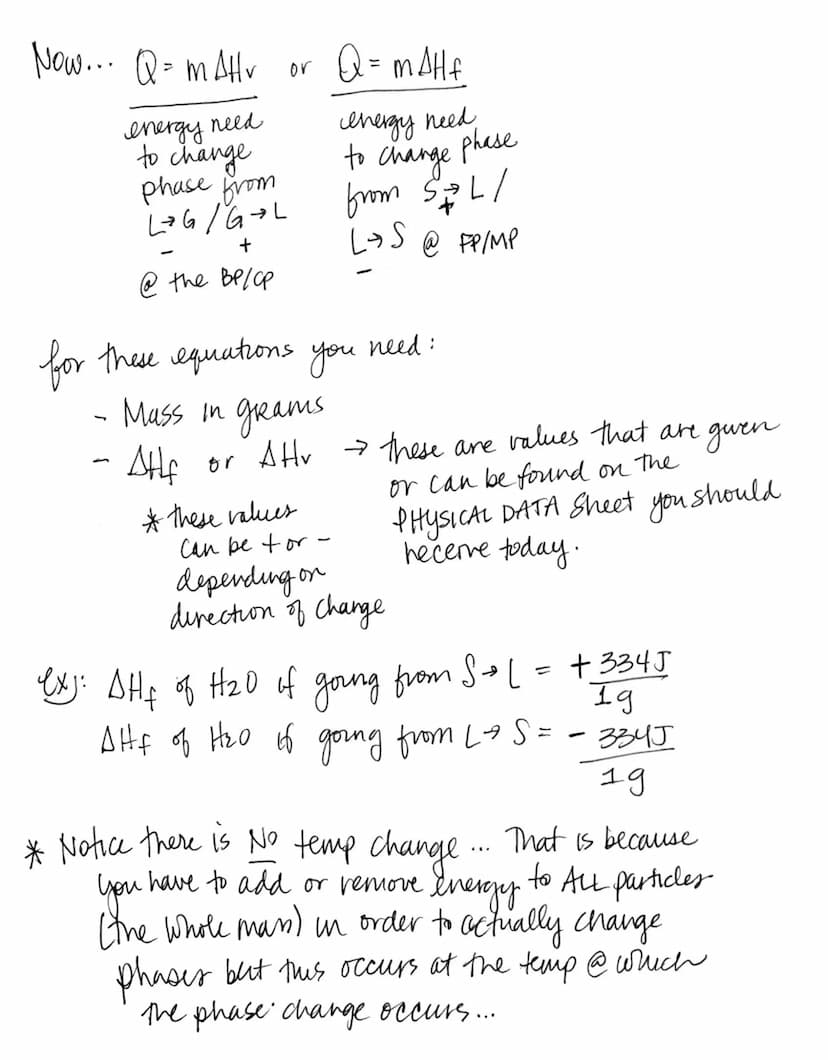 Now... Q = mΔHv or Q = mΔHf
energy need
to change
phase from
L→G / G→L
- +
@ the BP/CP
energy need
to change phase
from S→L /
+
L→S @ FP/MP
-
for these equations you need:
- Mass in grams
- ΔHf or ΔHv → these are values that are given
or can be found on the
PHYSICAL DATA Sheet you should
receive today.
* these values
can be + or -
depending on
direction of change
ex): ΔHf of H2O if going from S→L = + 334J
1g
ΔHf of H2O if going from L→S = - 334J
1g
* Notice there is NO temp change... That is because
you have to add or remove energy to ALL particles
(the whole mass) in order to actually change
phases but this occurs at the temp @ which
the phase change occurs...